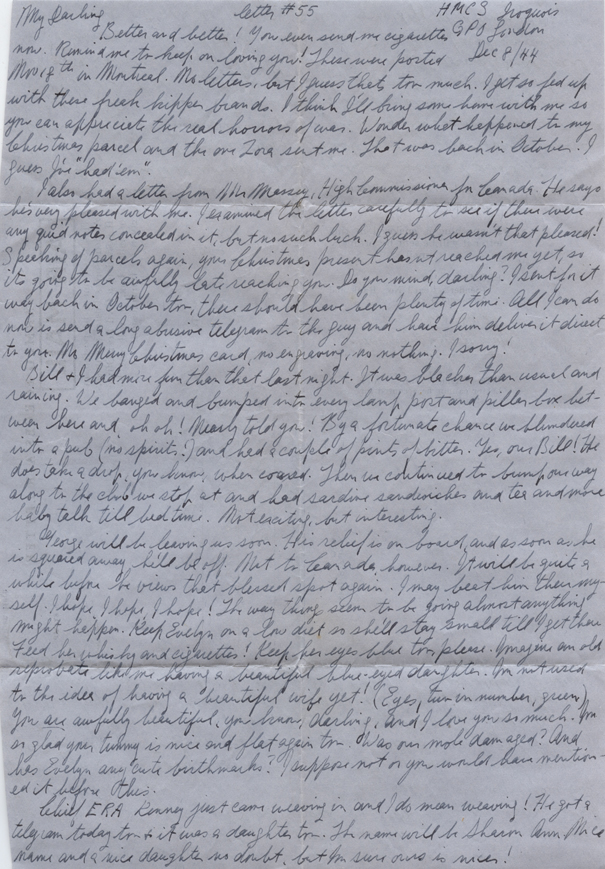 My Darling letter #55 HMCS Iroquois
Better and better! You even send me cigarettes GPO London
now. Remind me to keep on loving you! These were posted Dec 8/44
Nov 9th in Montreal. No letters, but I guess thats too much. I get so fed up
with these freak kipper brands. I think I'll bring some home with me so
you can appreciate the real horrors of war. Wonder what happened to my
Christmas parcel and the one Zora sent me. That was back in October. I
guess I've "had 'em".
I also had a letter from Mr. Massey, High Commissioner for Canada. He says
he's very pleased with me. I examined the letter carefully to see if there were
any quid notes concealed in it, but no such luck. I guess he wasn't that pleased!
Speaking of parcels again, your Christmas present hasn't reached me yet, so
its going to be awfully late reaching you. Do you mind, darling? I sent for it
way back in October too, there should have been plenty of time. All I can do
now is send a long abusive telegram to the guy and have him deliver it direct
to you. No Merry Christmas card, no engraving, no nothing. I sorry!
Bill & I had more fun than that last night. It was blacker than usual and
raining. We banged and bumped into every lamp post and pillar box bet-
ween here and oh oh! Nearly told you! By a fortunate chance we blundered
into a pub (no spirits.) and had a couple of pints of bitter. Yes, our Bill! He
does take a drop, you know, when coaxed. Then we continued to bump our way
along to the club we stop at and had sardine sandwiches and tea and more
baby talk till bed time. Not exciting, but interesting.
George will be leaving us soon. His relief is on board, and as soon as he
is squared away, he'll be off. Not to Canada however. It will be quite a
while before he views that blessed spot again. I may beat him there my-
self. I hope, I hope, I hope! The way things seem to be going almost anything
might happen. Keep Evelyn on a low diet so she'll stay small till I get there
Feed her whisky and cigarettes! Keep her eyes blue too, please. Imagine an old
reprobate like me having a beautiful blue-eyed daughter. I'm not used
to the idea of having a beautiful wife yet! (Eyes, two in number, green)
You are awfully beautiful, you know, darling. And I love you so much. I'm
so glad your tummy is nice and flat again too. Was our mole damaged? And
has Evelyn any cute birthmarks? I suppose not or you would have mention-
ed it before this.
Chief ERA Kenney just came weaving in and I do mean weaving! He got a
telegram today too & it was a daughter too. The name will be Sharon Ann. Nice
name and a nice daughter no doubt, but I'm sure ours is nicer!